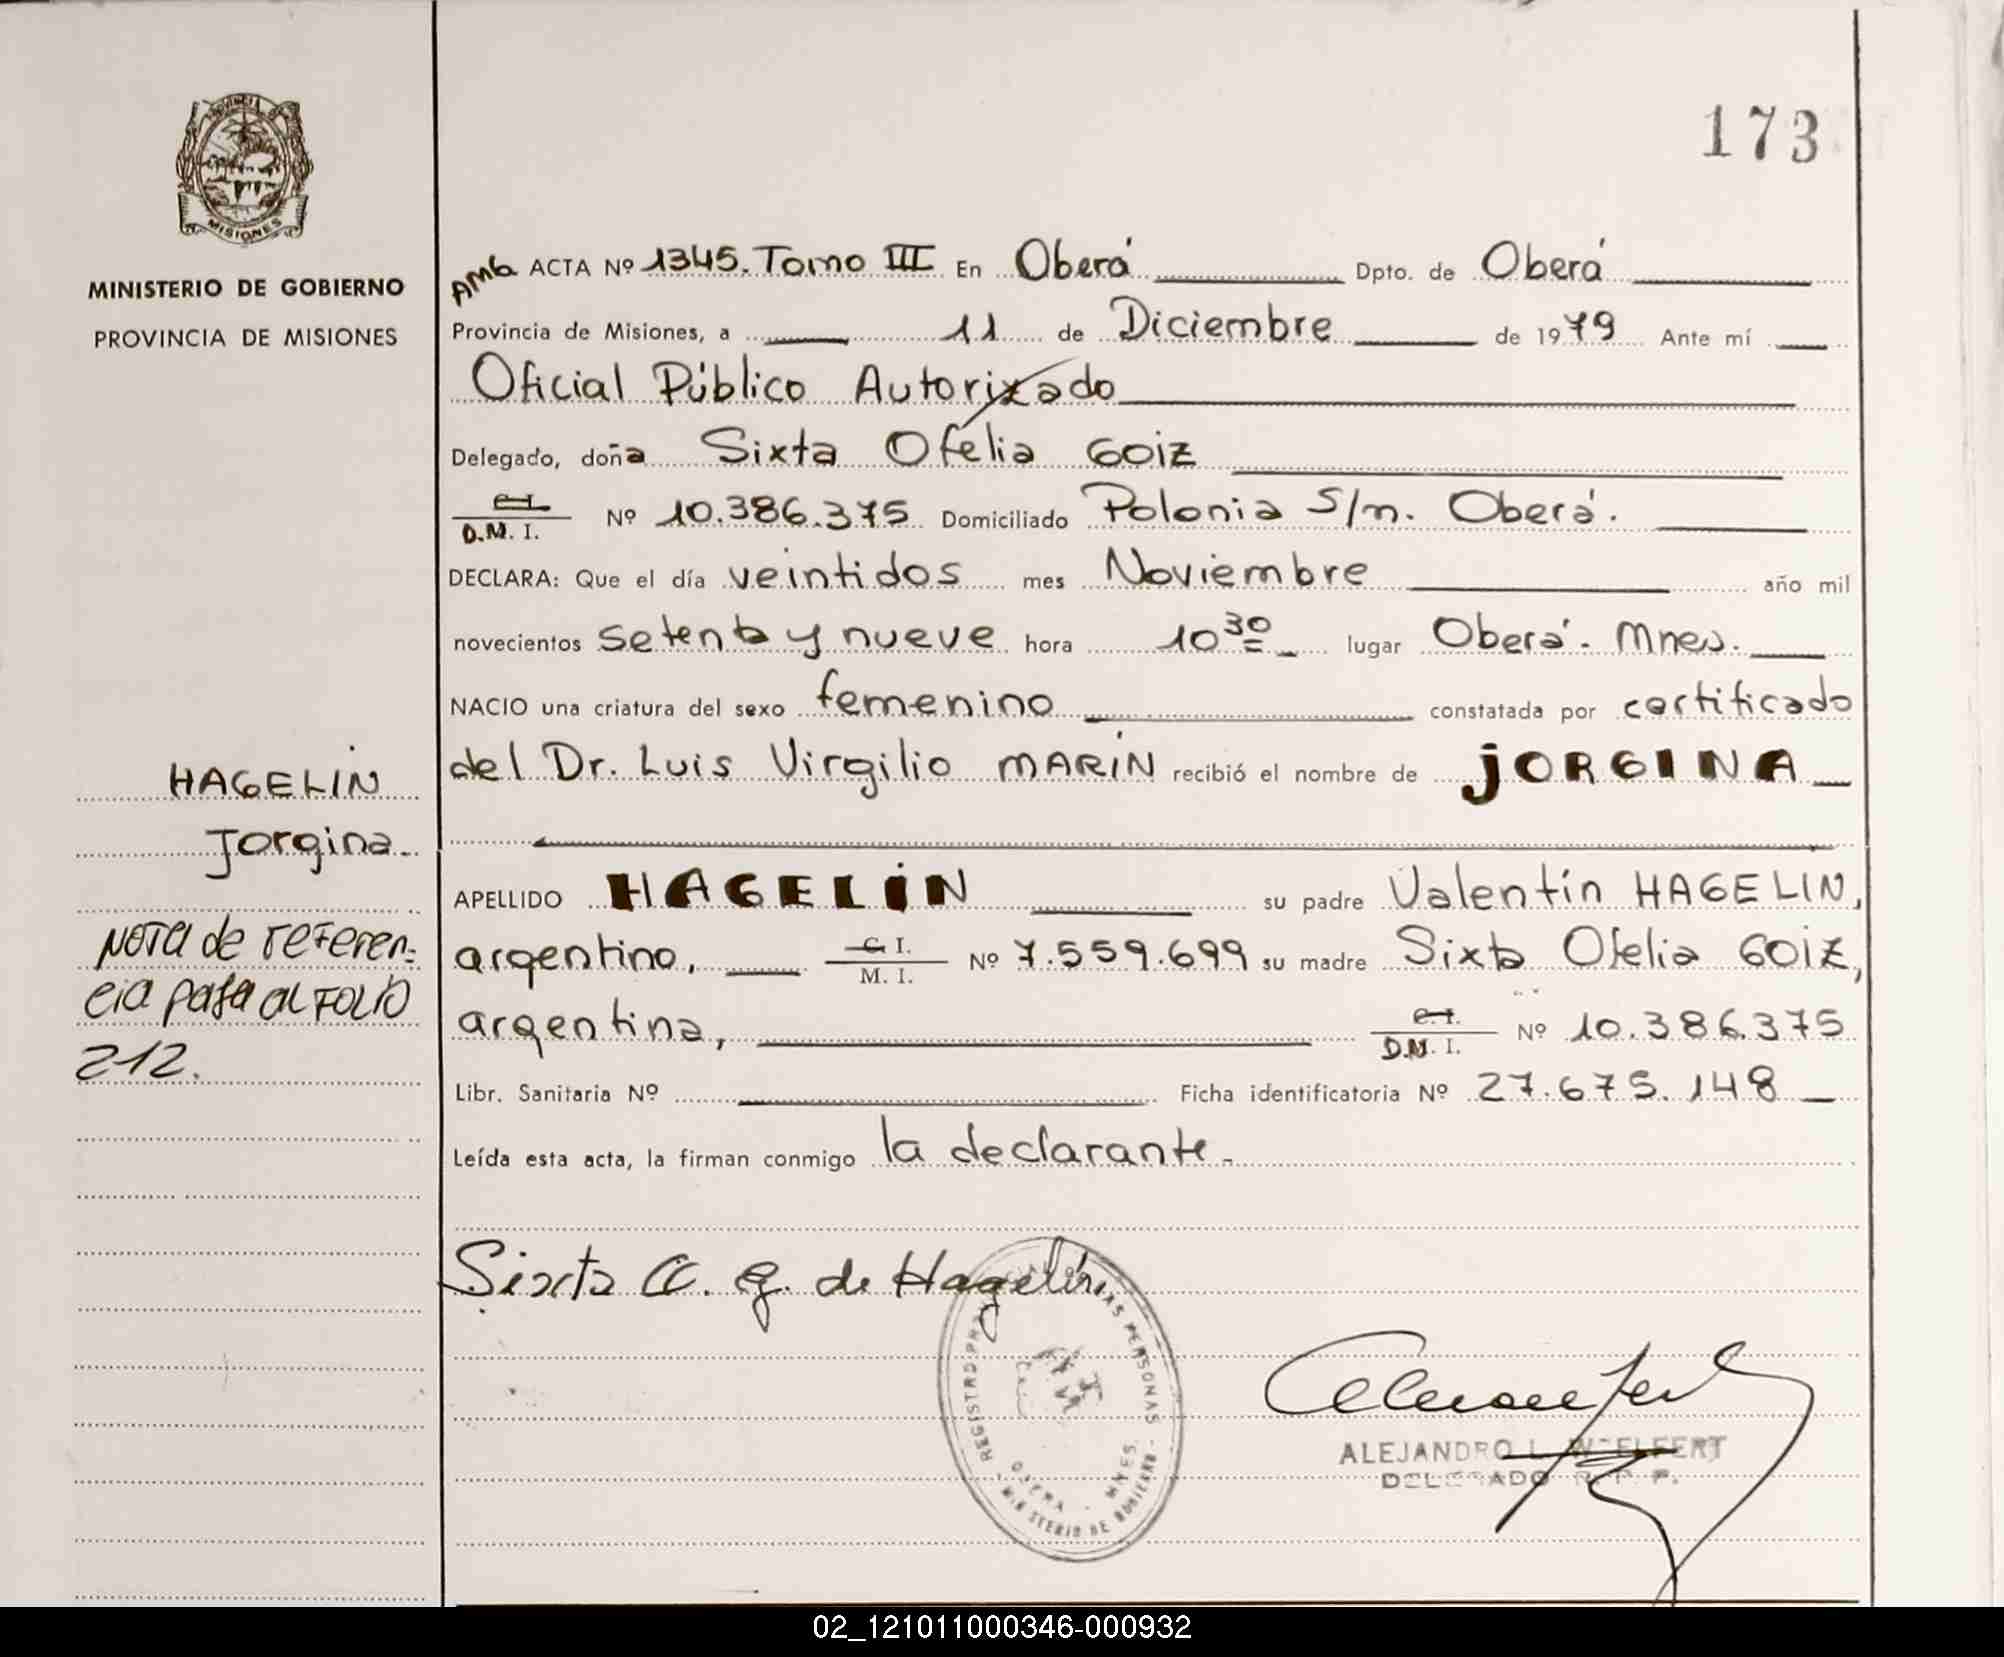 173
PROVINCIA
MISIONES
MINISTERIO DE GOBIERNO
PROVINCIA DE MISIONES
AMb ACTA Nº 1345. Tomo III En Oberá Dpto. de Oberá
Provincia de Misiones, a 11 de Diciembre de 1979 Ante mí
Oficial Público Autorizado
Delegado, doña Sixta Ofelia GOIZ
C.I. D.M.I. Nº 10.386.375 Domiciliado Polonia S/n. Oberá.
DECLARA: Que el día veintidos mes Noviembre año mil
novecientos setenta y nueve hora 10 30 lugar Oberá. Mnes.
NACIO una criatura del sexo femenino constatada por certificado
del Dr. Luis Virgilio MARÍN recibió el nombre de JORGINA
HAGELIN
Jorgina.
APELLIDO HAGELIN su padre Valentín HAGELIN,
argentino, C.I. M.I. Nº 7.559.699 su madre Sixta Ofelia GOIZ,
argentina, C.I. D.M.I. Nº 10.386.375
Nota de referen-
cia pasa al FOLIO
212.
Libr. Sanitaria Nº Ficha identificatoria Nº 27.675.148
Leída esta acta, la firman conmigo la declarante.
Sixta O. G. de Hagelin
REGISTRO PERSONAS
OBERA - MNES.
MINISTERIO DE GOBIERNO
ALEJANDRO L. WELFERT
DELEGADO R. P. P.
02_121011000346-000932